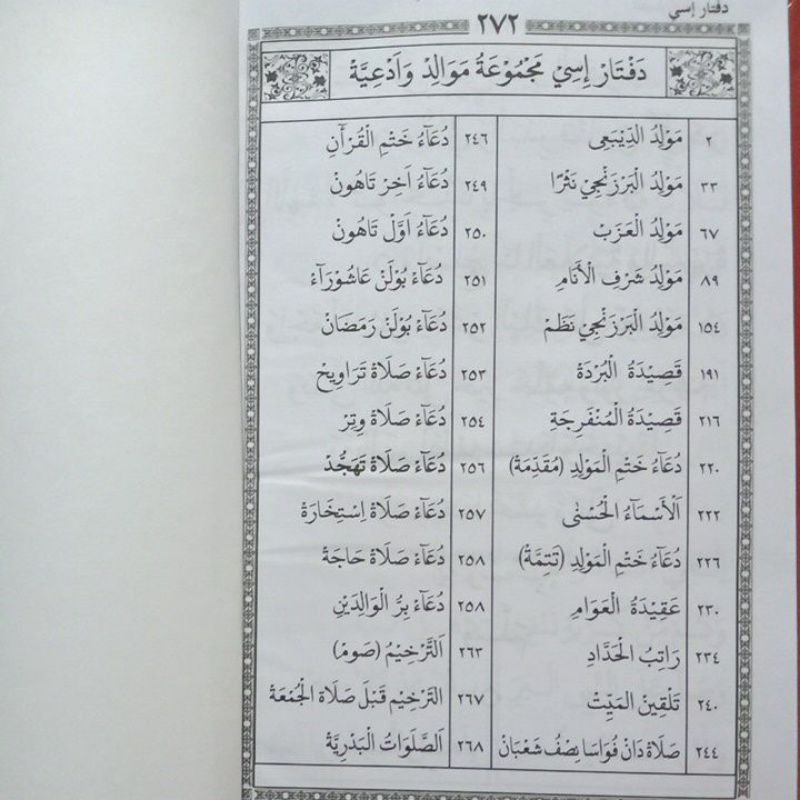 دفتار إسي
٢٧٢
دَفْتَارْ إِسِيْ مَجْمُوْعَةُ مَوَالِدْ وَاَدْعِيَّةْ
٢ مَوْلِدُ الدِّيْبَعِى
٣٣ مَوْلِدُ الْبَرْزَنْجِيْ نَثْرًا
٦٧ مَوْلِدُ الْعَزَبْ
٨٩ مَوْلِدُ شَرَفِ الْأَنَامِ
١٥٤ مَوْلِدُ الْبَرْزَنْجِيْ نَظَمْ
١٩١ قَصِيْدَةُ الْبُرْدَةْ
٢١٦ قَصِيْدَةُ الْمُنْفَرِجَةِ
٢٢٠ دُعَاءُ خَتْمِ الْمَوْلِدِ (مُقَدِّمَةْ)
٢٢٢ اَلْأَسْمَاءُ الْحُسْنٰى
٢٢٦ دُعَاءُ خَتْمِ الْمَوْلِدِ (تَتِمَّةْ)
٢٣٠ عَقِيْدَةُ الْعَوَامِ
٢٣٤ رَاتِبُ الْحَدَّادِ
٢٤٠ تَلْقِيْنُ الْمَيِّتْ
٢٤٤ صَلَاةْ دَانْ فُوَاسَا نِصْفُ شَعْبَانْ
٢٤٦ دُعَاءُ خَتْمِ الْقُرْآنِ
٢٤٩ دُعَاءْ اَخِرْ تَاهُونْ
٢٥٠ دُعَاءْ اَوَّلْ تَاهُونْ
٢٥١ دُعَاءْ بُوْلَنْ عَاشُوْرَاءْ
٢٥٢ دُعَاءْ بُوْلَنْ رَمَضَانْ
٢٥٣ دُعَاءْ صَلَاةْ تَرَاوِيْح
٢٥٤ دُعَاءْ صَلَاةْ وِتِرْ
٢٥٦ دُعَاءْ صَلَاةْ تَهَجُّدْ
٢٥٧ دُعَاءْ صَلَاةْ اِسْتِخَارَةْ
٢٥٨ دُعَاءْ صَلَاةْ حَاجَةْ
٢٥٨ دُعَاءْ بِرُّ الْوَالِدَيْنِ
٢٦٣ اَلتَّرْخِيْمُ (صَوِمْ)
٢٦٧ اَلتَّرْخِيْم قَبْلَ صَلَاةِ الْجُمْعَةْ
٢٦٨ اَلصَّلَوَاتُ الْبَدْرِيَّةْ